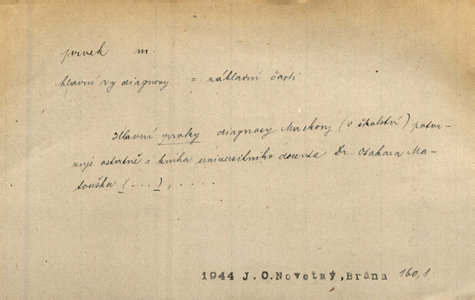 prvek m.
hlavní prvky diagnosy = základní části
Hlavní prvky diagnosy Machovy (o školství) potvr-
zuje ostatně i kniha universitního docenta Dr. Otakara Ma-
touška (...), ....
1944 J.O.Novotný,Brána 160,8